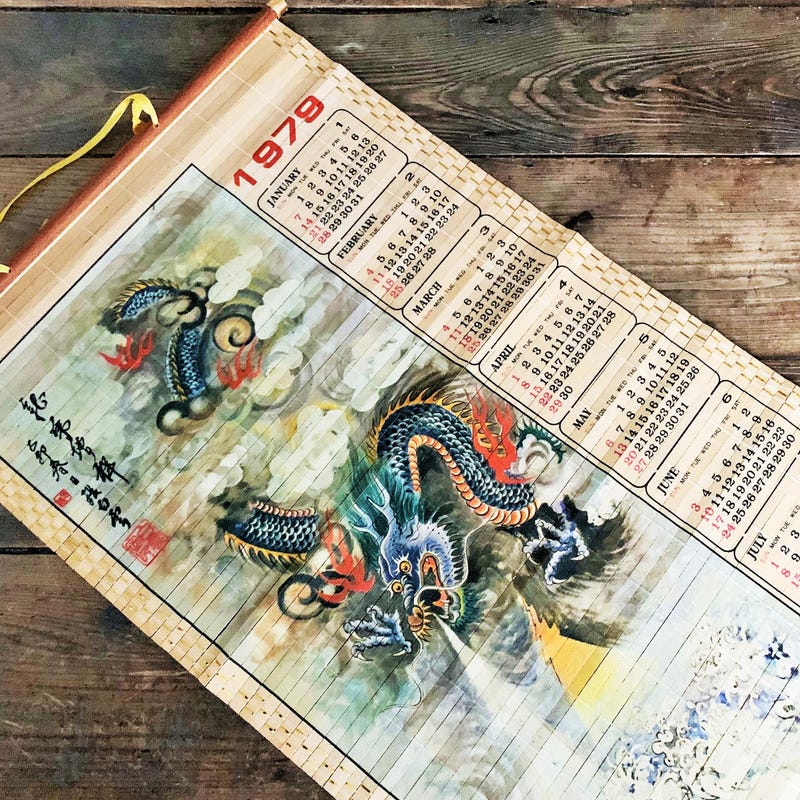 1979
JANUARY 1
SUN MON TUE WED THU FRI SAT
1 2 3 4 5 6
7 8 9 10 11 12 13
14 15 16 17 18 19 20
21 22 23 24 25 26 27
28 29 30 31
FEBRUARY 2
SUN MON TUE WED THU FRI SAT
1 2 3
4 5 6 7 8 9 10
11 12 13 14 15 16 17
18 19 20 21 22 23 24
25 26 27 28
MARCH 3
SUN MON TUE WED THU FRI SAT
1 2 3
4 5 6 7 8 9 10
11 12 13 14 15 16 17
18 19 20 21 22 23 24
25 26 27 28 29 30 31
APRIL 4
SUN MON TUE WED THU FRI SAT
1 2 3 4 5 6 7
8 9 10 11 12 13 14
15 16 17 18 19 20 21
22 23 24 25 26 27 28
29 30
MAY 5
SUN MON TUE WED THU FRI SAT
1 2 3 4 5
6 7 8 9 10 11 12
13 14 15 16 17 18 19
20 21 22 23 24 25 26
27 28 29 30 31
JUNE 6
SUN MON TUE WED THU FRI SAT
1 2
3 4 5 6 7 8 9
10 11 12 13 14 15 16
17 18 19 20 21 22 23
24 25 26 27 28 29 30
JULY
SUN MON TUE WED
1 2 3
8 9
15
龍